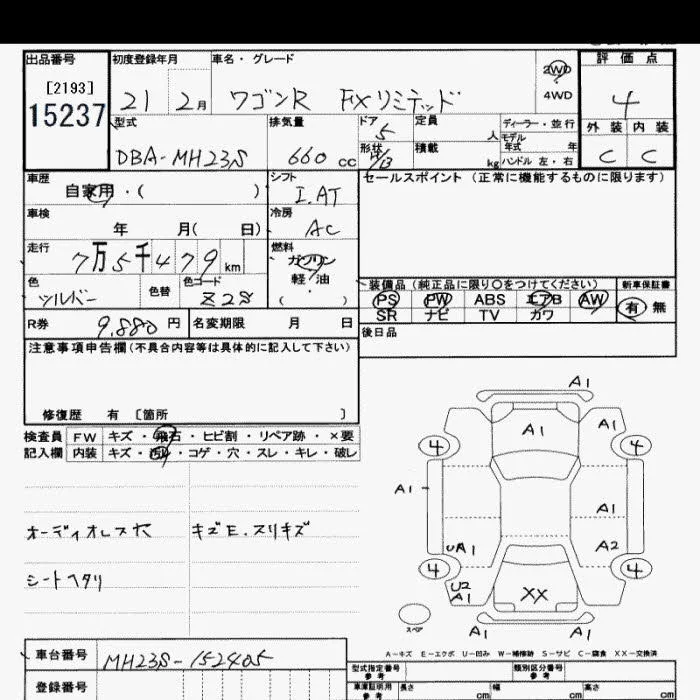 出品番号 初度登録年月 車名・グレード 2WD 評価点
[2193]
15237 21 2月 ワゴンR FXリミテッド 4WD 4
型式 排気量 ドア 5 定員 人 ディーラー・並行 外装 内装
モデル年式 年
DBA-MH23S 660cc 形状 積載 kg ハンドル 左・右 C C
車歴 自家用・( ) シフト I.AT セールスポイント(正常に機能するものに限ります)
車検 年 月( 日) 冷房 AC
走行 7万5千479km 燃料 ガソリン 軽・油 ( )
色 シルバー 色替 色コード Z2S 装備品(純正品に限り○をつけてください) 新車保証書
PS PW ABS エアB AW 有 無
SR ナビ TV カワ
R券 9,880円 名変期限 月 日 後日品
注意事項申告欄(不具合内容等は具体的に記入して下さい)
修復歴 有 〔箇所 〕
検査員 FW キズ・飛石・ヒビ割・リペア跡・×要
記入欄 内装 キズ・汚れ・コゲ・穴・スレ・キレ・破レ
オーディオレス穴 キズE.スリキズ
シートヘタリ
A1
A1 A1
4 4
A1 A1
UA1 A2
4 4
U2
A1 XX
A1 A1
スペア
A-キズ E-エクボ U-凹み W-補修跡 S-サビ C-腐食 XX-交換済
車台番号 MH23S-152405 型式指定番号 参考 類別区分番号 参考
登録番号 車庫証明用 参考 長さ cm 幅 cm 高さ cm